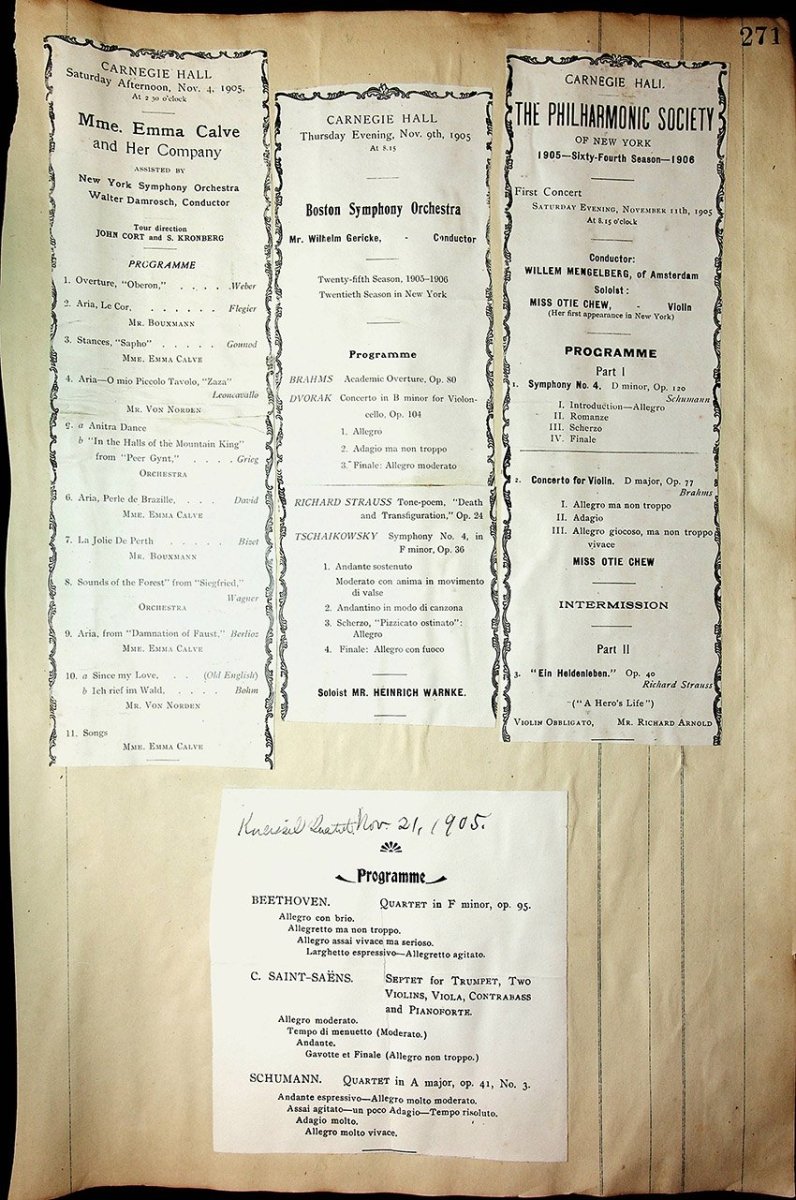 271
CARNEGIE HALL
Saturday Afternoon, Nov. 4, 1905.
At 2 30 o'clock
Mme. Emma Calve
and Her Company
ASSISTED BY
New York Symphony Orchestra
Walter Damrosch, Conductor
Tour direction
JOHN CORT and S. KRONBERG
PROGRAMME
1. Overture, "Oberon," . . . . . Weber
2. Aria, Le Cor, . . . . . . . Flegier
MR. BOUXMANN
3. Stances, "Sapho" . . . . . Gounod
MME. EMMA CALVE
4. Aria—O mio Piccolo Tavolo, "Zaza"
Leoncavallo
MR. VON NORDEN
5. a Anitra Dance
b "In the Halls of the Mountain King"
from "Peer Gynt," . . . . . Grieg
ORCHESTRA
6. Aria, Perle de Brazille, . . . . David
MME. EMMA CALVE
7. La Jolie De Perth . . . . . Bizet
MR. BOUXMANN
8. Sounds of the Forest" from "Siegfried,"
Wagner
ORCHESTRA
9. Aria, from "Damnation of Faust," Berlioz
MME. EMMA CALVE
10. a Since my Love, . . . (Old English)
b Ich rief im Wald, . . . . Bohm
MR. VON NORDEN
11. Songs
MME. EMMA CALVE
CARNEGIE HALL
Thursday Evening, Nov. 9th, 1905
At 8.15
Boston Symphony Orchestra
Mr. Wilhelm Gericke, - Conductor
Twenty-fifth Season, 1905-1906
Twentieth Season in New York
Programme
BRAHMS Academic Overture, Op. 80
DVORAK Concerto in B minor for Violon-
cello, Op. 104
1. Allegro
2. Adagio ma non troppo
3. Finale: Allegro moderato
RICHARD STRAUSS Tone-poem, "Death
and Transfiguration," Op. 24
TSCHAIKOWSKY Symphony No. 4, in
F minor, Op. 36
1. Andante sostenuto
Moderato con anima in movimento
di valse
2. Andantino in modo di canzona
3. Scherzo, "Pizzicato ostinato":
Allegro
4. Finale: Allegro con fuoco
Soloist MR. HEINRICH WARNKE.
CARNEGIE HALL
THE PHILHARMONIC SOCIETY
OF NEW YORK
1905—Sixty-Fourth Season—1906
First Concert
SATURDAY EVENING, NOVEMBER 11th, 1905
At 8.15 o'clock
Conductor:
WILLEM MENGELBERG, of Amsterdam
Soloist:
MISS OTIE CHEW, - Violin
(Her first appearance in New York)
PROGRAMME
Part I
1. Symphony No. 4. D minor, Op. 120
Schumann
I. Introduction—Allegro
II. Romanze
III. Scherzo
IV. Finale
2. Concerto for Violin. D major, Op. 77
Brahms
I. Allegro ma non troppo
II. Adagio
III. Allegro giocoso, ma non troppo
vivace
MISS OTIE CHEW
INTERMISSION
Part II
3. "Ein Heldenleben." Op. 40
Richard Strauss
("A Hero's Life")
VIOLIN OBBLIGATO, MR. RICHARD ARNOLD
Kneisel Quartet Nov. 21, 1905.
Programme
BEETHOVEN. QUARTET in F minor, op. 95.
Allegro con brio.
Allegretto ma non troppo.
Allegro assai vivace ma serioso.
Larghetto espressivo—Allegretto agitato.
C. SAINT-SAËNS. SEPTET for TRUMPET, TWO
VIOLINS, VIOLA, CONTRABASS
and PIANOFORTE.
Allegro moderato.
Tempo di menuetto (Moderato.)
Andante.
Gavotte et Finale (Allegro non troppo.)
SCHUMANN. QUARTET in A major, op. 41, No. 3.
Andante espressivo—Allegro molto moderato.
Assai agitato—un poco Adagio—Tempo risoluto.
Adagio molto.
Allegro molto vivace.